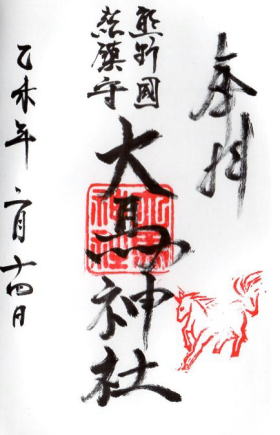 奉拝
熊野國
鎮守
大馬神社
乙未年二月十四日